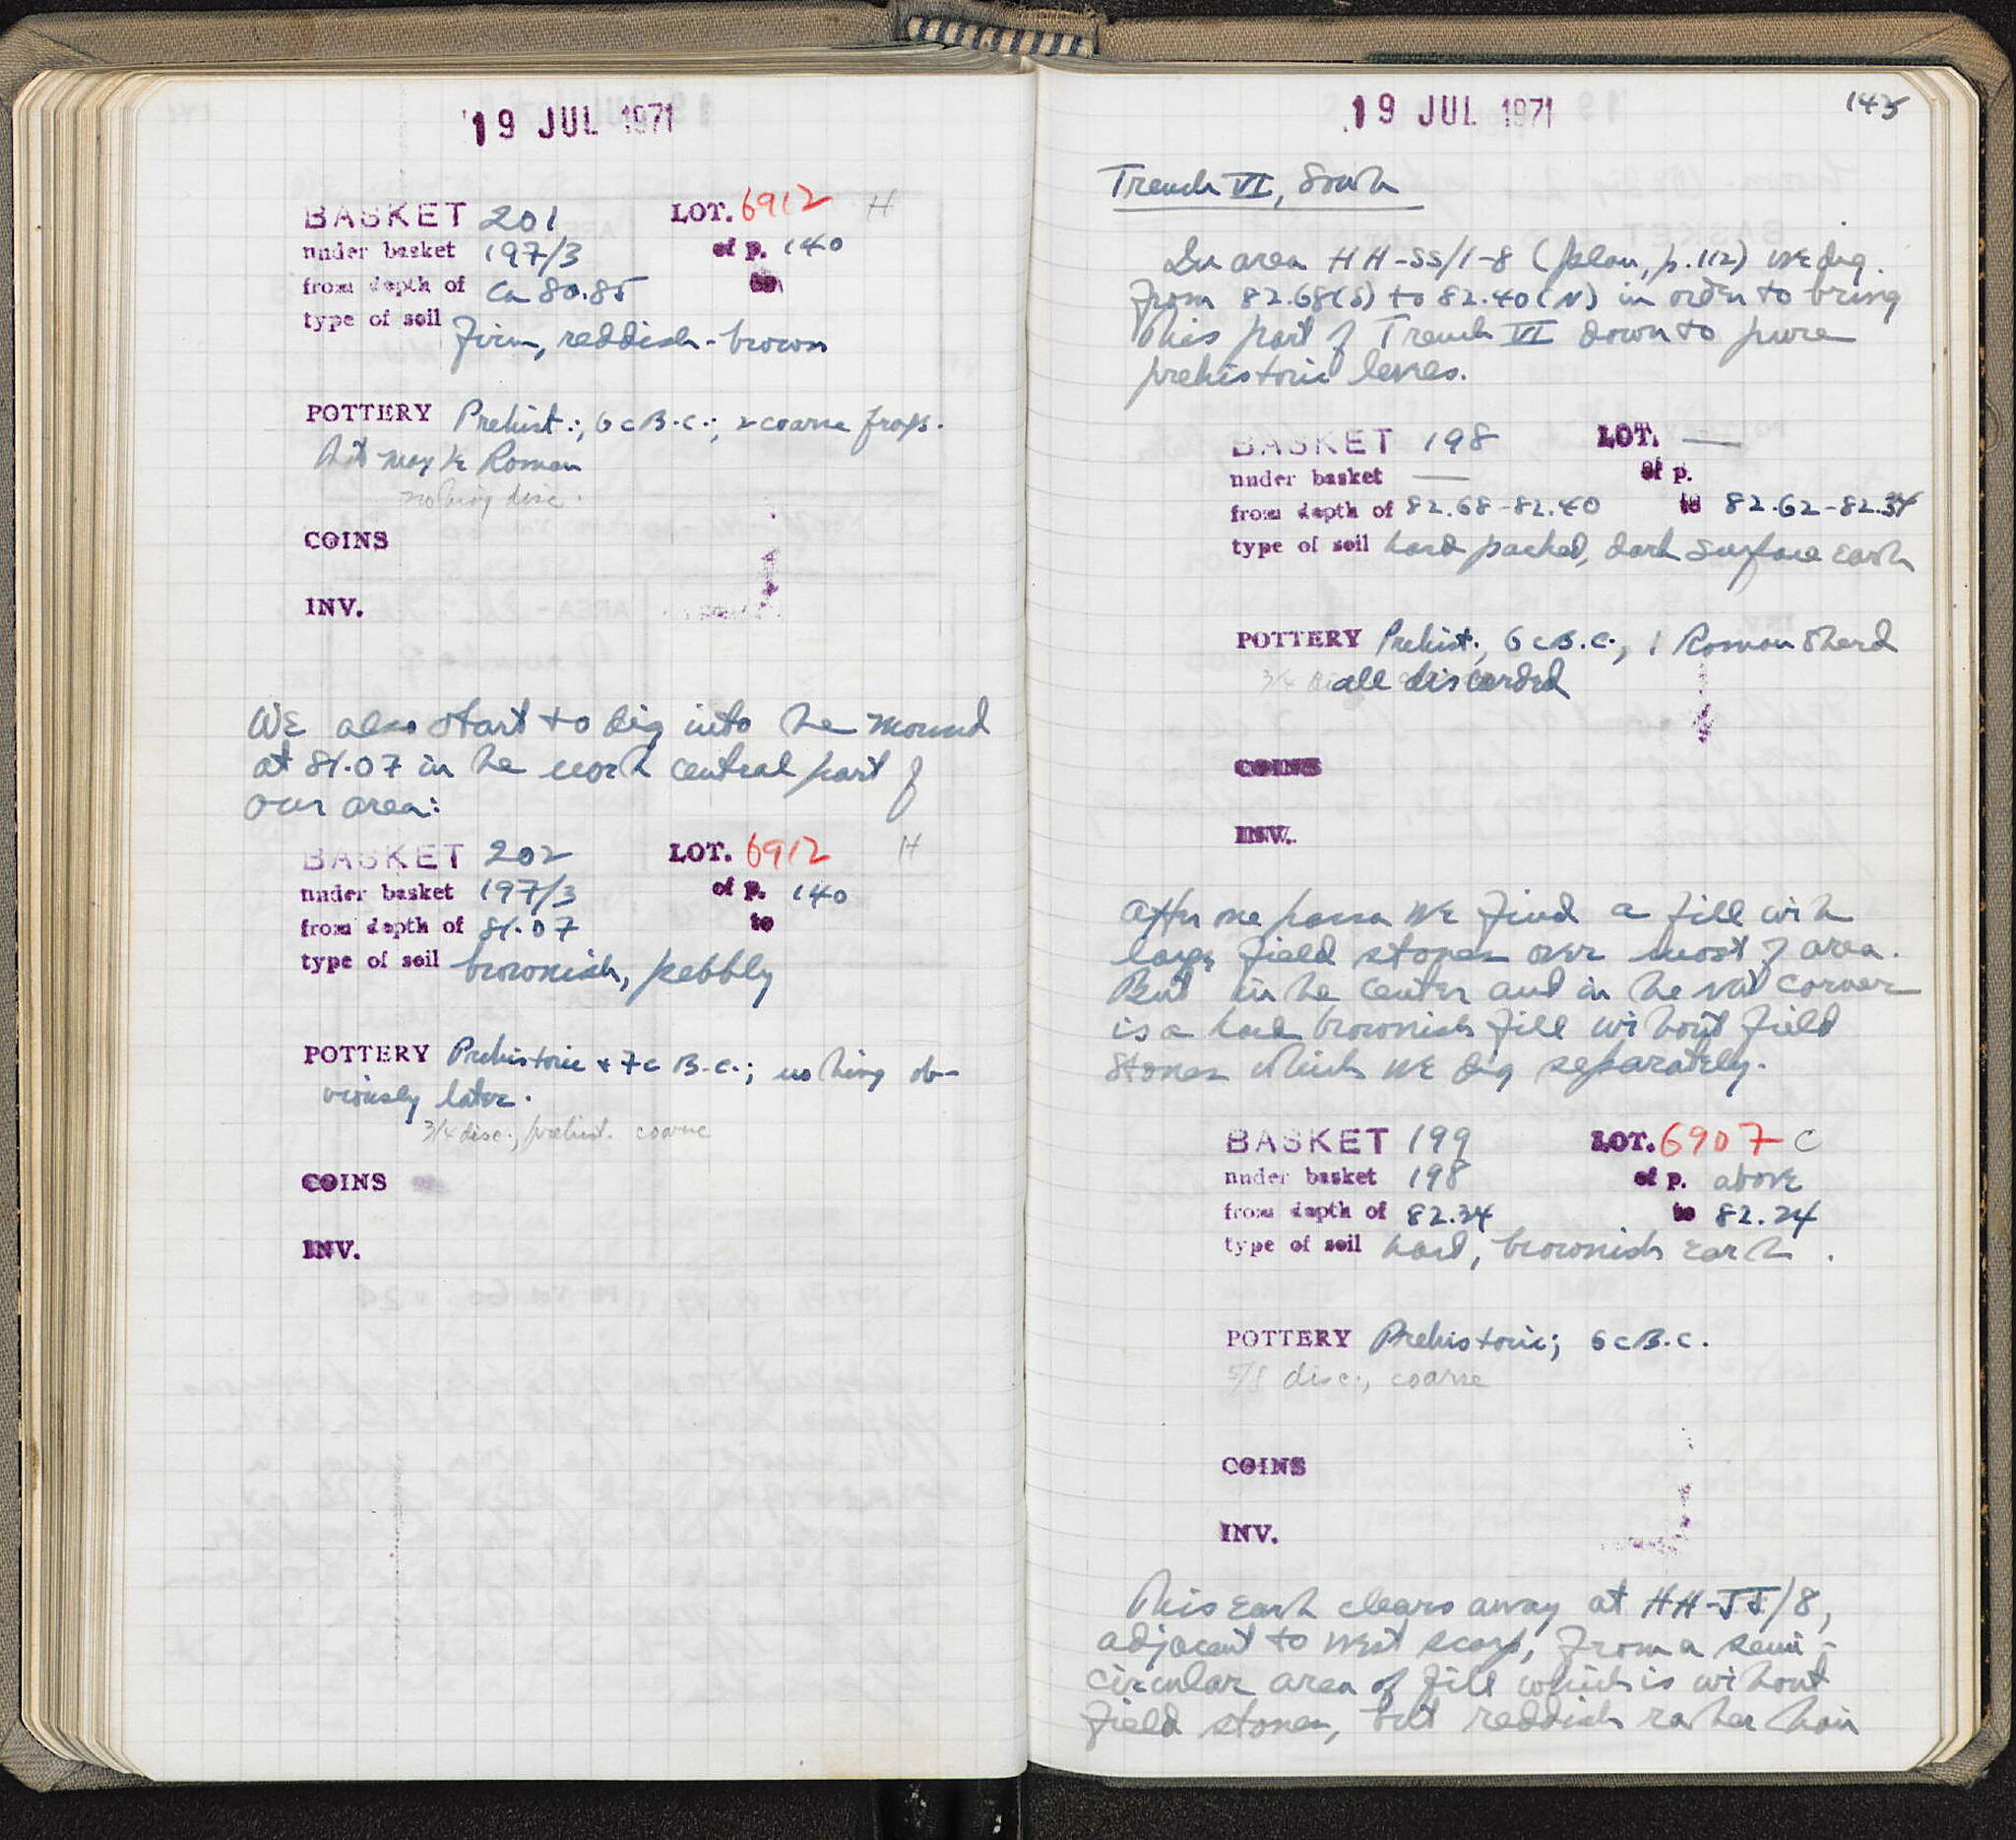 19 JUL 1971
BASKET 201 LOT. 6912 H
under basket 197/3 of p. 140
from depth of ca 80.85 to
type of soil Firm, reddish-brown
POTTERY Prehist.; 6 c B.C.; 2 coarse frags.
that may be Roman
nothing disc.
COINS
INV.
We also start to dig into the mound
at 81.07 in the north central part of
our area:
BASKET 202 LOT. 6912 H
under basket 197/3 of p. 140
from depth of 81.07 to
type of soil brownish, pebbly
POTTERY Prehistoric + 7c B.C.; nothing ob-
viously later.
3/4 disc., prehist. coarse
COINS
INV.
19 JUL 1971
145
Trench VI, South
In area HH-SS/1-8 (plan, p. 112) we dig
from 82.68(S) to 82.40(N) in order to bring
this part of Trench VI down to pure
prehistoric levels.
BASKET 198 LOT. —
under basket — of p.
from depth of 82.68-82.40 to 82.62-82.34
type of soil hard packed, dark surface earth
POTTERY Prehist., 6 c B.C., 1 Roman sherd
all discarded
COINS
INV.
After one passa we find a fill with
large field stones over most of area.
But in the center and in the NW corner
is a hard brownish fill without field
stones which we dig separately.
BASKET 199 LOT. 6907 C
under basket 198 of p. above
from depth of 82.34 to 82.24
type of soil hard, brownish earth.
POTTERY Prehistoric; 6 c B.C.
5/8 disc., coarse
COINS
INV.
This earth clears away at HH-JJ/8,
adjacent to west scarp, from a semi-
circular area of fill which is without
field stones, but reddish rather than